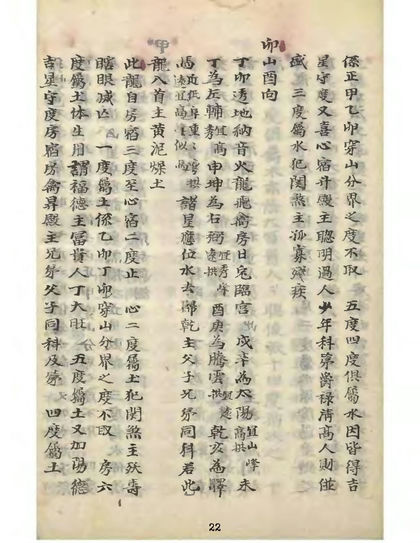 係正甲乙卯穿山分界之度不取 五度四度俱屬水因皆得吉
星守度又喜心宿升殿主聰明過人少年科第爵祿清高人財並
盛 三度屬水犯関煞主孤寡殘疾
卯山酉向
丁卯透地納音火龍飛衡房日兔臨宮 戌辛為太陽宜山峰高拱 未
丁為左輔宜 申坤為右弼宜秀峰遠拱 酉庚為騰雲 乾亥為
馬 諸星應位水去歸乾主父子兄弟同科若此
龍入首主黃泥燥土
此龍自房宿三度至心宿二度止 心二度屬土犯関煞主殀壽
瞎眼滅凶 一度屬土係乙卯丁卯穿山分界之度不取 房六
度屬土体生用謂福德主富貴人丁大旺 五度屬土又加陽德
吉星守度房宿房禽昇殿主兄弟父子同科及第 四度屬土
22